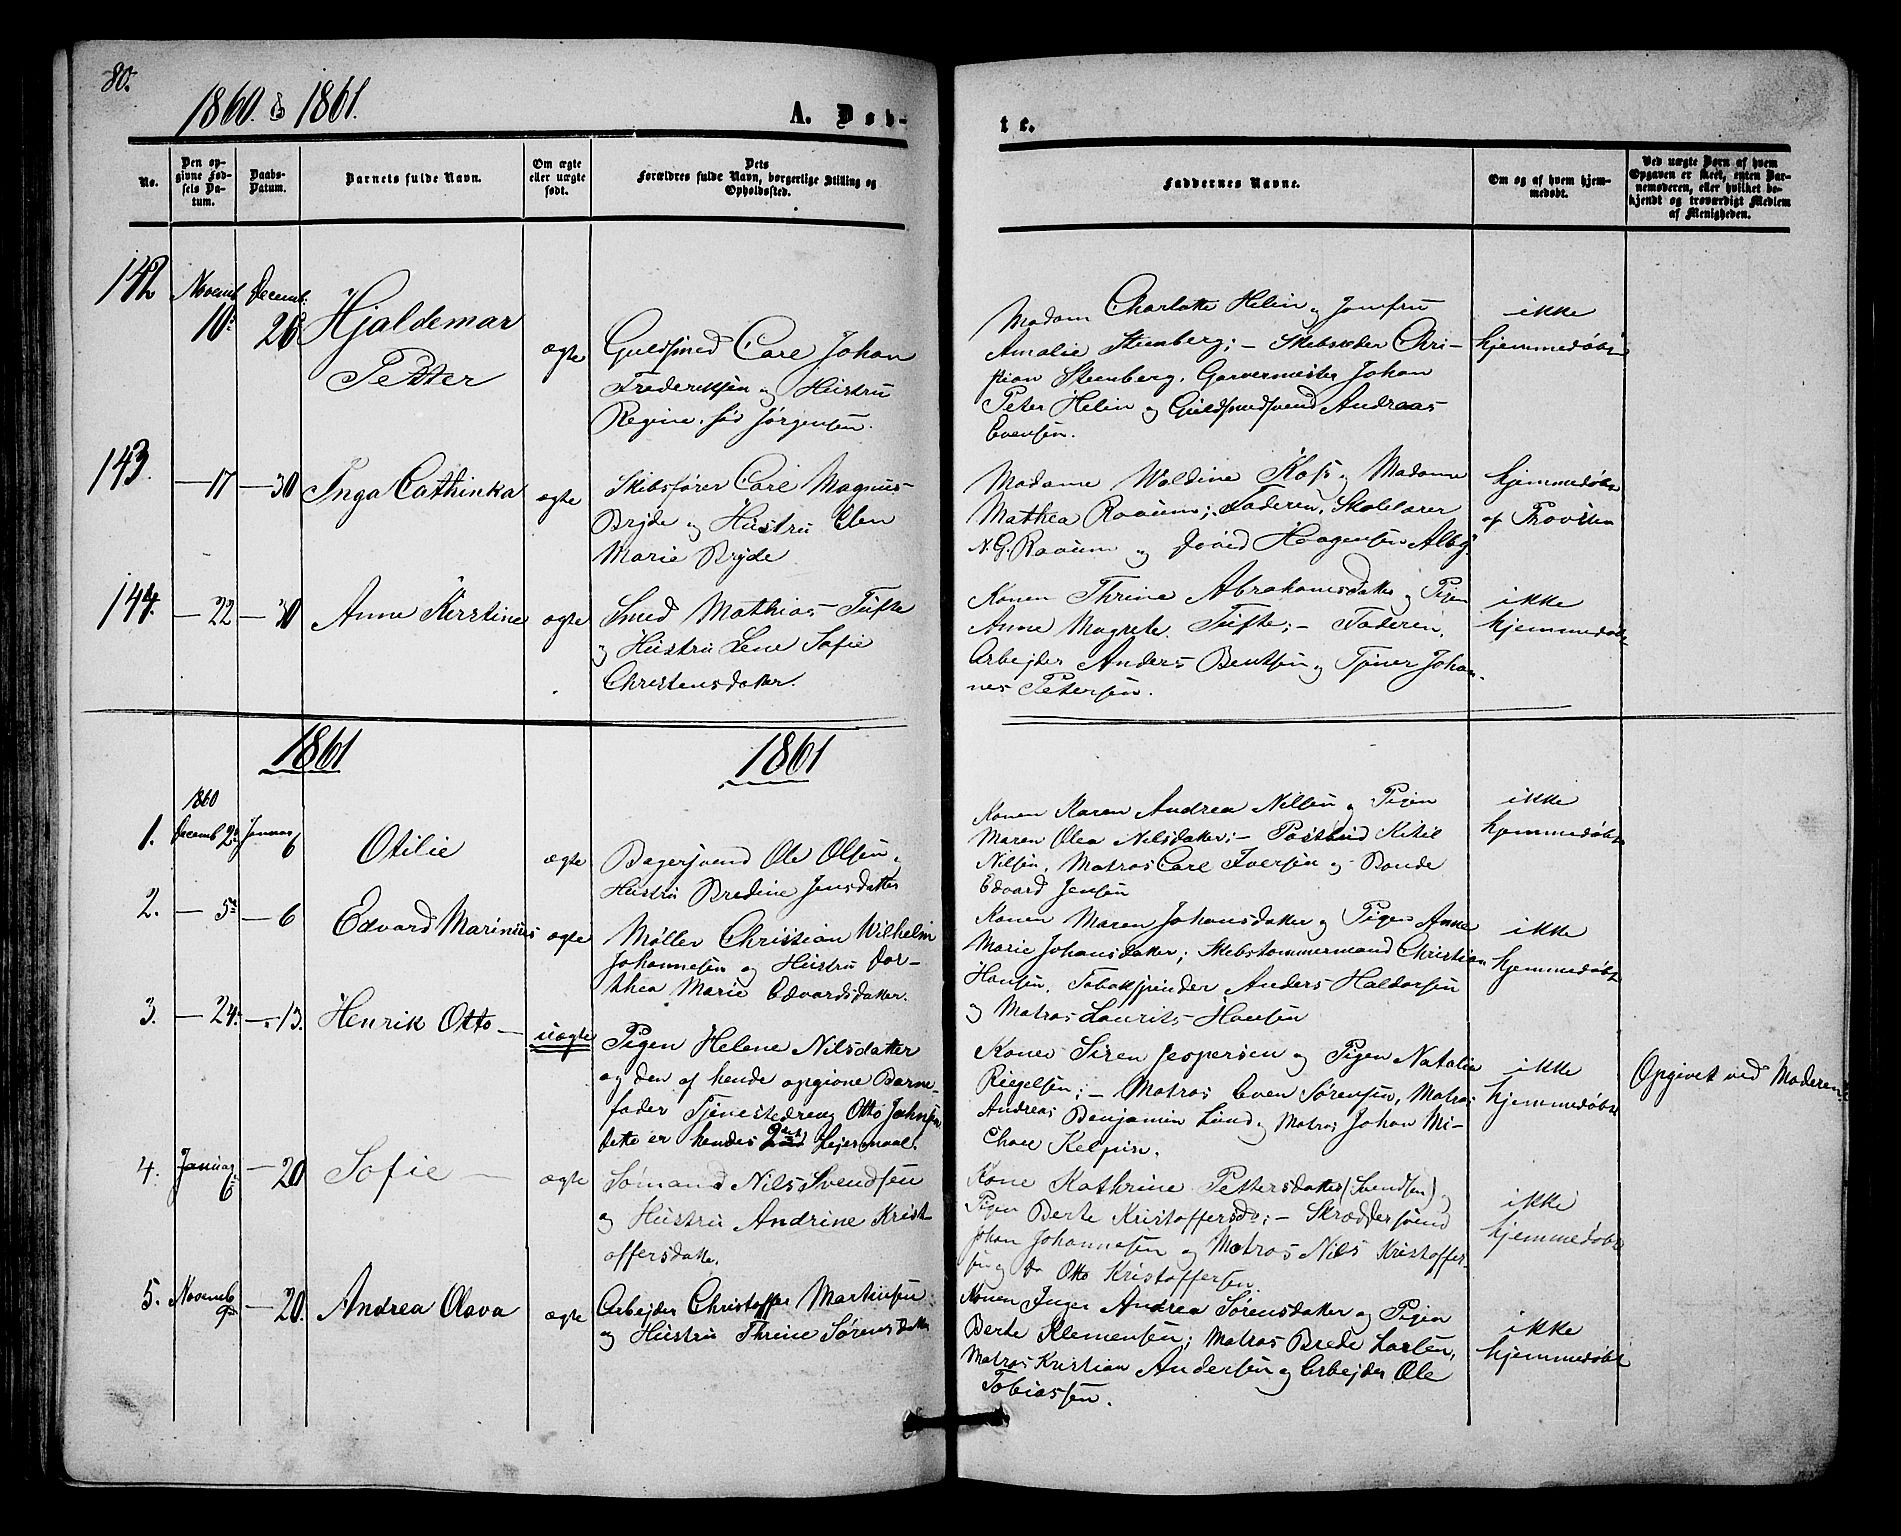 80.
1860. & 1861.
A. Døb-
te.
No.
Den op-
givne Fød-
sels Da-
tum.
Daabs-
Datum.
Barnets fulde Navn.
Om ægte
eller uægte
født.
Dets
Forældres fulde Navn, borgerlige Stilling og
Opholdssted.
Faddernes Navne.
Om og af hvem hjem-
medøbt.
Ved uægte Børn af hvem
Opgaven er skeet, enten Bar-
nemoderen, eller hvilket be-
kjendt og troværdigt Medlem
af Menigheden.
142
Novemb
10
Decemb.
26
Hjaldemar
Petter
ægte
Guldsmed Carl Johan
Frederiksen og Hustru
Regine, fød Jørgensen.
Madam Charlotte Helin og Jomfru
Amalie Steenberg; – Skibsreder Chri-
stian Steenberg, Garvermester Johan
Peter Helin og Guldsmedsvend Andreas
Evensen.
ikke
hjemmedøbt
143.
— 17
— 30
Inga Cathinka
ægte
Skibsfører Carl Magnus
Bryde og Hustru Elen
Marie Bryde
Madame Valdine Foss og Madame
Mathea Raaum; Faderen, Skolelærer
N. G. Raaum og Haagensen Alby
hjemmedøbt
af Provsten
144.
— 22
— 30
Anne Kirstine
ægte
Smed Mathias Tufte
og Hustru Lene Sofie
Christensdatter.
Konen Thrine Abrahamsdatter og Pigen
Anne Magrete Tufte; – Faderen,
Arbejder Anders Bentsen og Tjener Johan-
nes Petersen.
ikke
hjemmedøbt
1861
1861
1.
1860
Decemb 2
Januar
6
Otilie
ægte
Bagersvend Ole Olsen
Hustru Bredine Jensdatter
Konen Karen Andrea Nilsen og Pigen
Maren Olea Nilsdatter; – Postbud Kitil
Nilsen, Matros Carl Iversen og Bonde
Edvard Jensen
ikke
hjemmedøbt
2.
— 5
— 6
Edvard Marinius
ægte
Møller Christian Wilhelm
Johannesen og Hustru Dor-
thea Marie Edvardsdatter.
Konen Maren Johansdatter og Pigen Anne
Marie Johansdatter; Skibstømmermand Christian
Hansen, Tobakspinder Anders Haldorsen
og Matros Laurits Hansen
ikke
hjemmedøbt
3.
— 24.
— 13.
Henrik Otto —
uægte
Pigen Helene Nilsdatter
og den af hende opgivne Barne-
fader Tjenestedreng Otto Johnsen
dette er hendes 2det Lejermaal.
Konen Siren Jespersen og Pigen Natalia
Riegelsen; – Matros Even Sørensen, Matros
Andreas Benjamin Lund og Matros Johan Mi-
chael
ikke
hjemmedøbt
Opgivet ved Moderen
4.
Januar
6
— 20
Sofie —
ægte
Sømand Nils Svendsen
og Hustru Andrine Krist-
offersdatter.
Kone Kathrine Pettersdatter (Svendsen) og
Pigen Berte Kristoffersdr; – Skræddersvend
Johan Johannesen og Matros Nils Kristoffer-
sen og do Otto Kristoffersen
ikke
hjemmedøbt
5.
Novemb
9
— 20.
Andrea Olava
ægte
Arbejder Christoffer Martinsen
og Hustru Thrine Sørensdatter
Konen Inger Andrea Sørensdatter og Pigen
Berte Klemensen; Matros Brede Larsen,
Matros Kristian Andersen og Arbejder Ole
Tobiassen.
ikke
hjemmedøbt